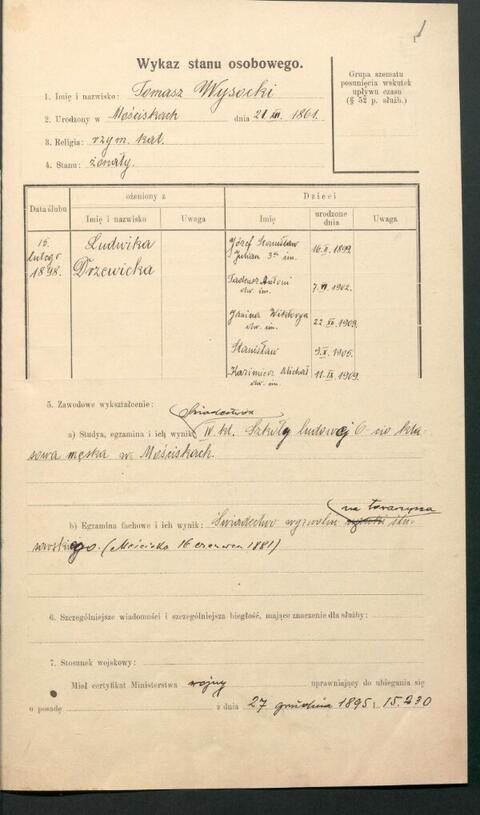 1
Wykaz stanu osobowego.
Grupa szematu
posunięcia wskutek
upływu czasu
(§ 52 p. służb.)
1. Imię i nazwisko: Tomasz Wysocki
2. Urodzony w Mościskach dnia 21 III. 1861.
3. Religia: rzym. kat.
4. Stanu: żonaty.
Data ślubu
ożeniony z
Imię i nazwisko
Uwaga
Dzieci
Imię
urodzone dnia
Uwaga
15. lutego 1898.
Ludwika Drzewicka
Józef Stanisław
Julian 3ch im. 16. II. 1899.
Tadeusz Antoni
dw. im. 7. VI. 1902.
Janina Wiktorya
dw. im. 22. XII. 1903.
Stanisław 9. X. 1905.
Kazimierz Michał
dw. im. 11. IX. 1909.
5. Zawodowe wykształcenie:
Świadectwo
a) Studya, egzamina i ich wynik: IV. kl. Szkoły ludowej 6-cio kla-
sowa męska w Mościskach.
na towarzysza
b) Egzamina fachowe i ich wynik: Świadectwo wyzwolin ślu-
sarskiego. (Mościska 16 czerwca 1881)
6. Szczególniejsze wiadomości i szczególniejsza biegłość, mające znaczenie dla służby:
7. Stosunek wojskowy:
Miał certyfikat Ministerstwa wojny uprawniający do ubiegania się
o posadę z dnia 27 grudnia 1895 r. 15.230